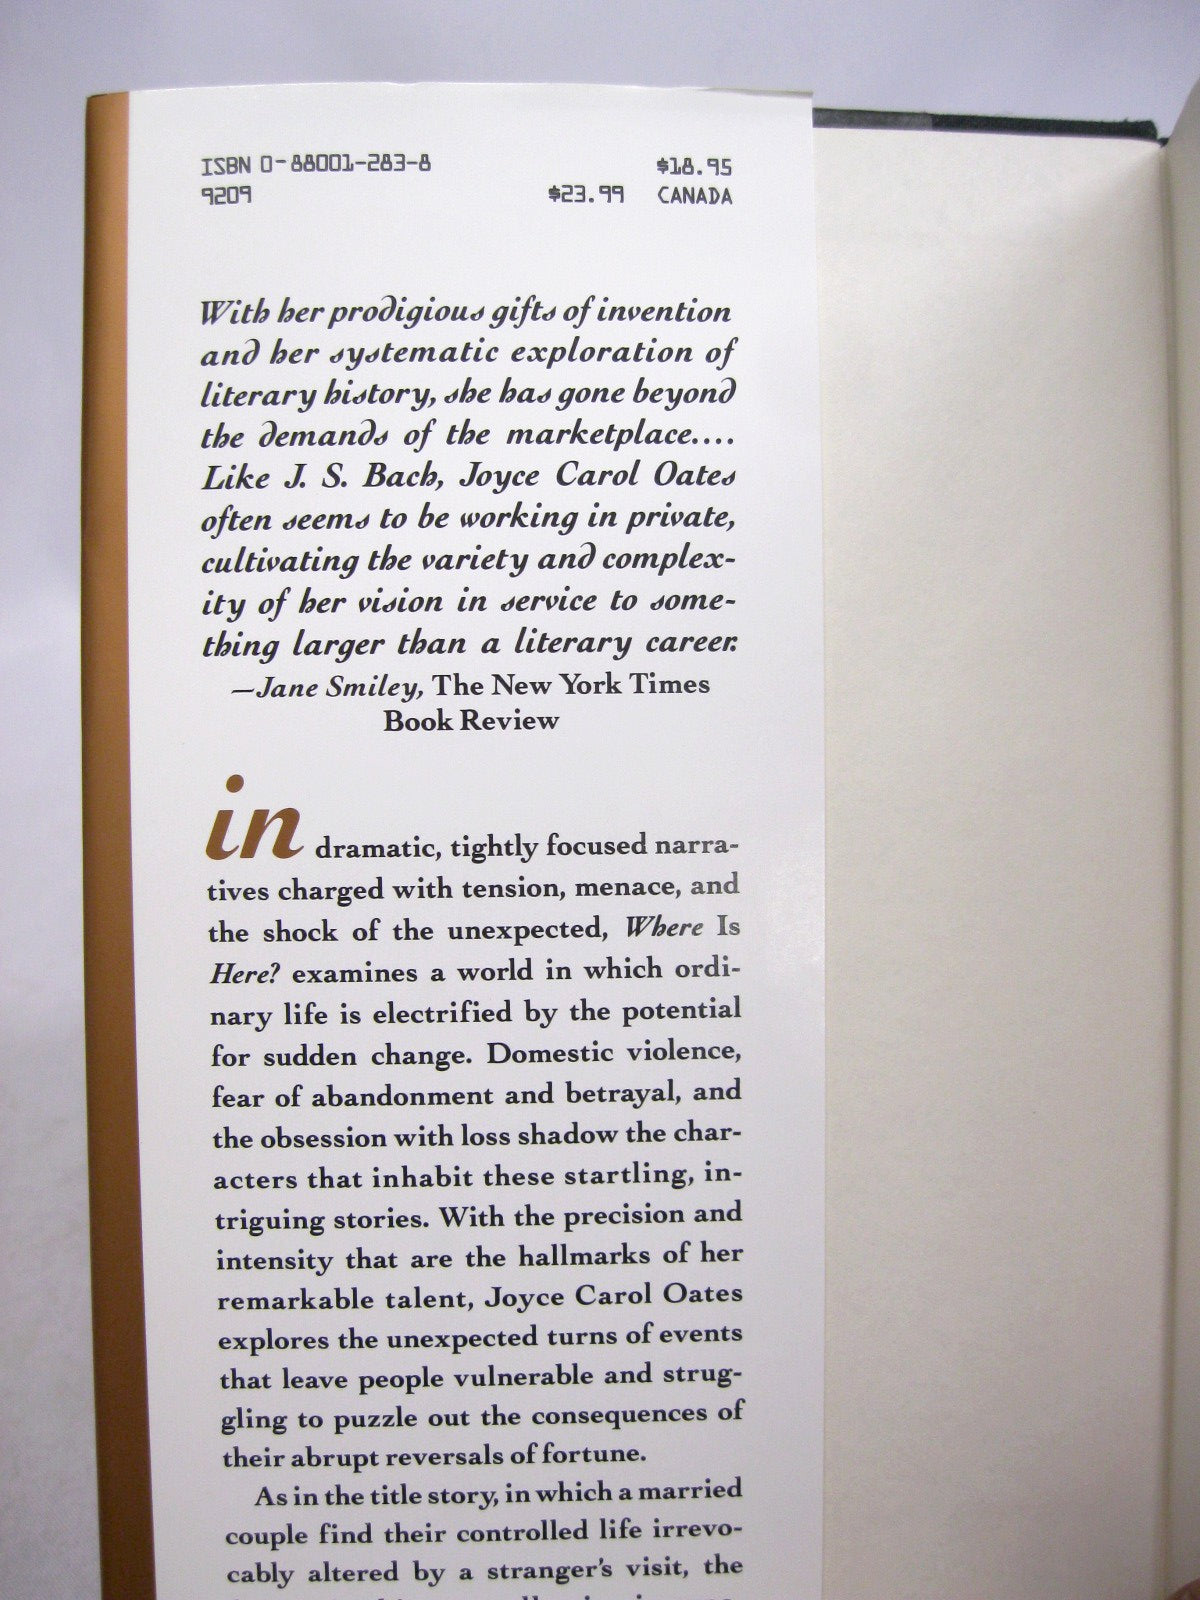 ISBN 0-88001-283-8 $18.95
9209 $23.99 CANADA
With her prodigious gifts of invention
and her systematic exploration of
literary history, she has gone beyond
the demands of the marketplace....
Like J. S. Bach, Joyce Carol Oates
often seems to be working in private,
cultivating the variety and complex-
ity of her vision in service to some-
thing larger than a literary career.
—Jane Smiley, The New York Times
Book Review
in dramatic, tightly focused narra-
tives charged with tension, menace, and
the shock of the unexpected, Where Is
Here? examines a world in which ordi-
nary life is electrified by the potential
for sudden change. Domestic violence,
fear of abandonment and betrayal, and
the obsession with loss shadow the char-
acters that inhabit these startling, in-
triguing stories. With the precision and
intensity that are the hallmarks of her
remarkable talent, Joyce Carol Oates
explores the unexpected turns of events
that leave people vulnerable and strug-
gling to puzzle out the consequences of
their abrupt reversals of fortune.
As in the title story, in which a married
couple find their controlled life irrevo-
cably altered by a stranger's visit, the